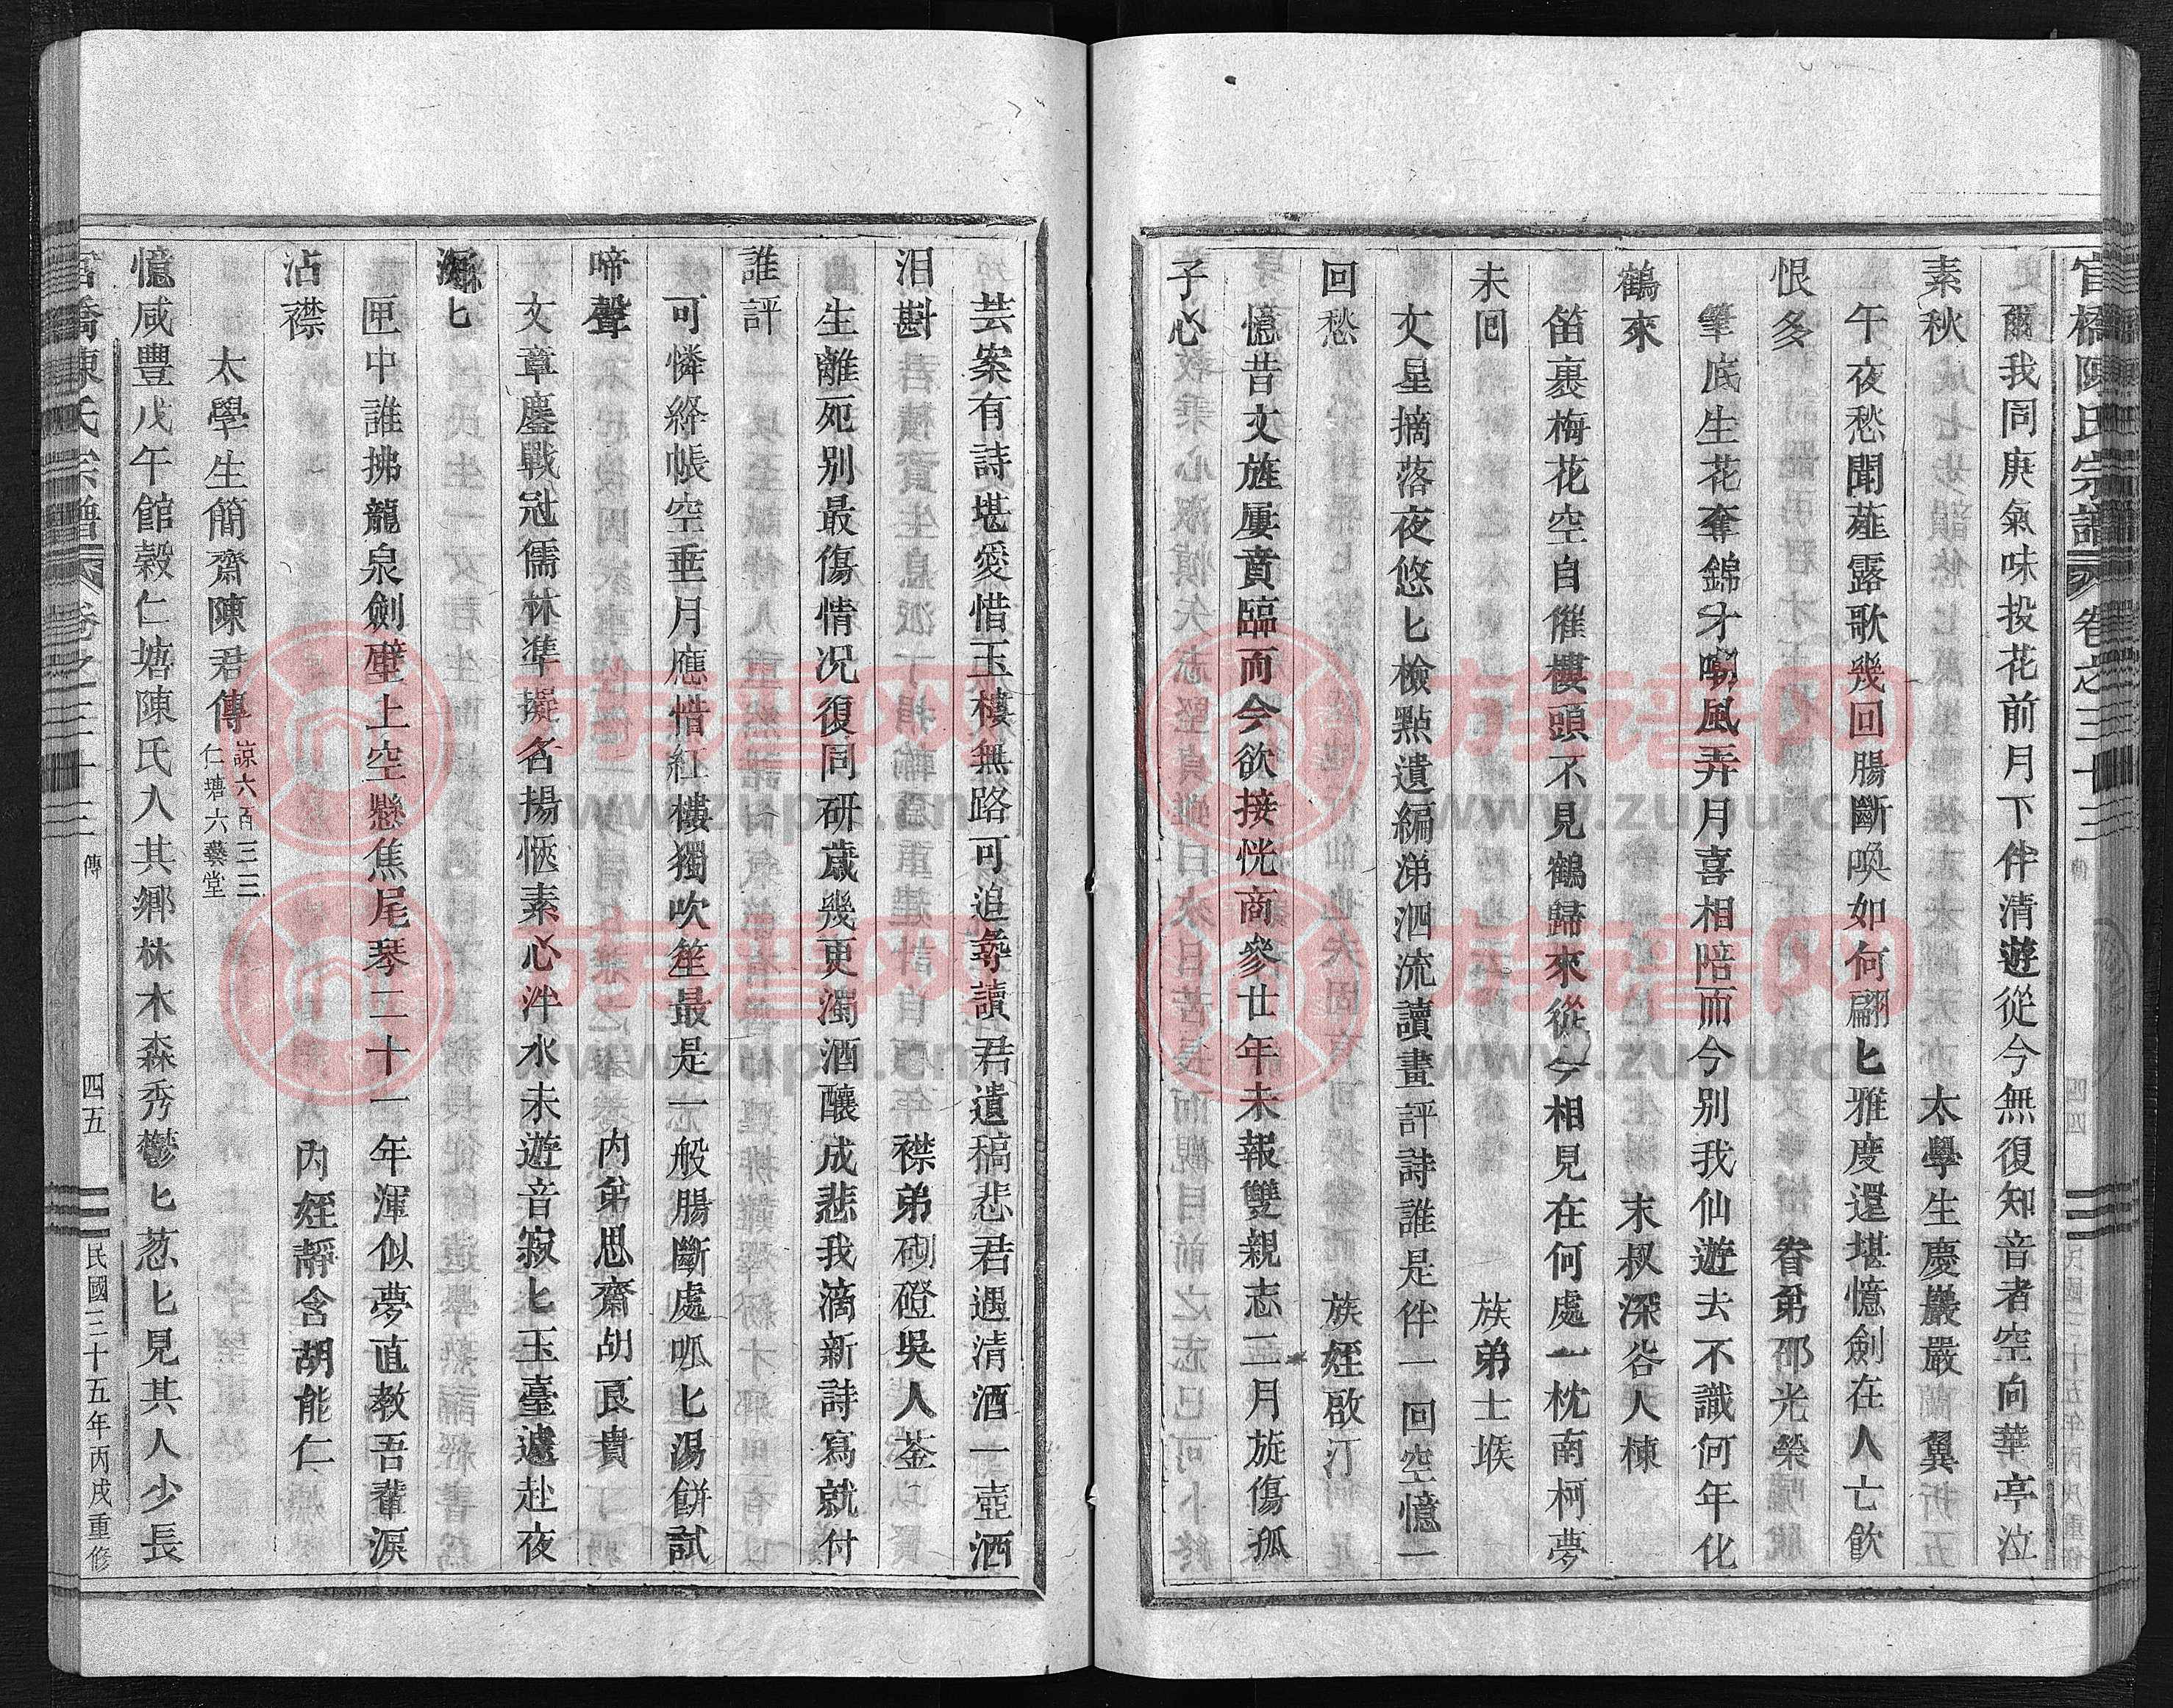 官橋陳氏宗譜 卷之三十三 傳 四四 民國三十五年丙戌重修
爾我同庚氣味投花前月下伴清遊從今無復知音者空向華亭泣
素秋 太學生慶巖嚴翼
午夜愁聞薤露歌幾回腸斷喚如何翩匕雅度還堪憶劍在人亡飲
恨多 眷弟邵光榮
筆底生花奪錦才嘲風弄月喜相陪而今別我仙遊去不識何年化
鶴來 末叔深谷人棟
笛裏梅花空自催樓頭不見鶴歸來從今相見在何處一枕南柯夢
未回 族弟士堠
文星摘落夜悠匕檢點遺編涕泗流讀畫評詩誰是伴一回空憶一
回愁 族姪啟汀
憶昔文旌屢賁臨而今欲接恍商參廿年未報雙親志二月旋傷孤
子心
芸案有詩堪愛惜玉樓無路可追尋讀君遺稿悲君遇清酒一壺洒
泪斟 襟弟砌磴吳人荃
生離死別最傷情況復同研歲幾更濁酒釀成悲我滴新詩寫就付
誰評
可憐絳帳空垂月應惜紅樓獨吹笙最是一般腸斷處呱匕湯餅試
啼聲 內弟思齋胡良貴
文章鏖戰冠儒林準擬名揚愜素心泮水未遊音寂匕玉臺遽赴夜
沉匕
匣中誰拂龍泉劍壁上空懸焦尾琴二十一年渾似夢直教吾輩淚
沾襟 內姪靜含胡能仁
太學生簡齋陳君傳 諒六百三三 仁塘六藝堂
憶咸豐戊午館穀仁塘陳氏入其鄉林木森秀鬱匕葱匕見其人少長
官橋陳氏宗譜 卷之三十三 傳 四五 民國三十五年丙戌重修
族譜网
www.zupu.cn